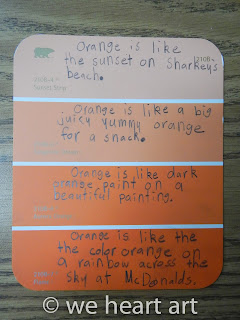 Orange is like
the sunset on Sharkeys
beach.
Orange is like a big
juicy yummy orange
for a snack.
Orange is like dark
orange paint on a
beautiful painting.
Orange is like the
the color orange on
a rainbow across the
sky at McDonalds.
© we heart art